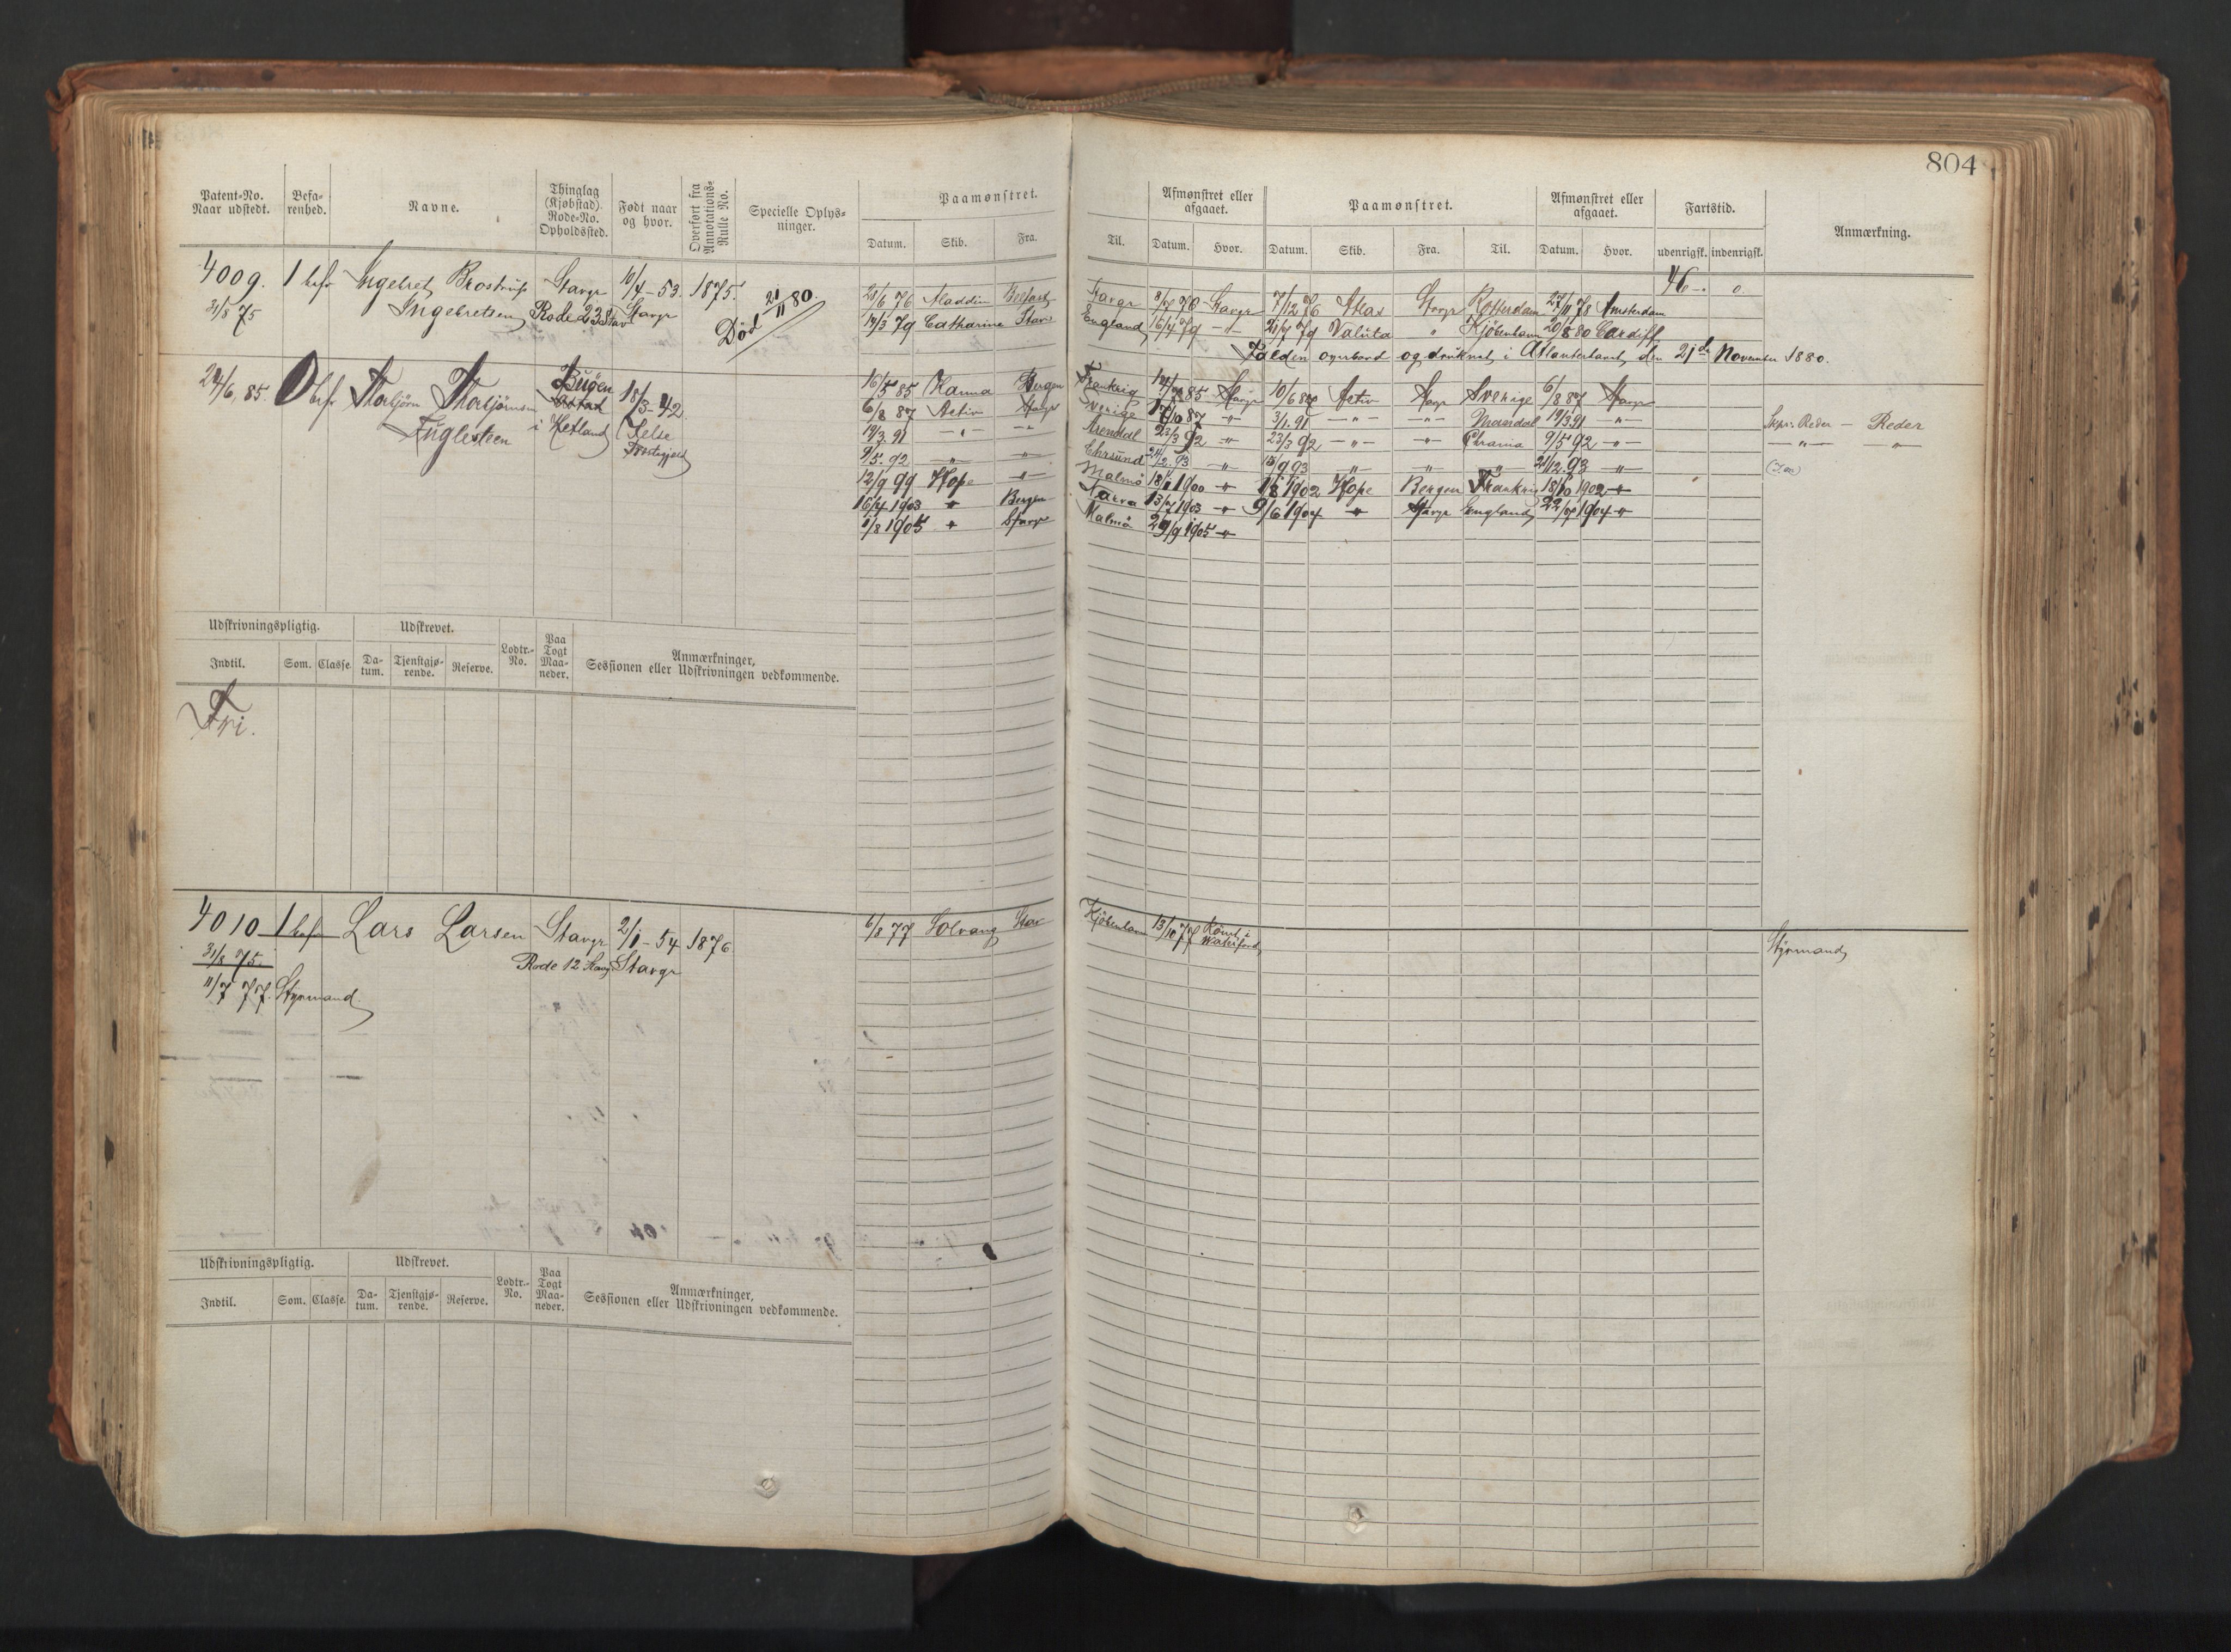 804
Patent-No. Naar udstedt. Befa-renhed. Navne. Thinglag (Kjøbstad) Rode-No. Opholdssted. Født naar og hvor. Overført fra Annotations-Rulle No. Specielle Oplys-ninger. Paamønstret. Afmønstret eller afgaaet. Paamønstret. Afmønstret eller afgaaet. Fartstid. Anmærkning.
Datum. Skib. Fra. Til. Datum. Hvor. Datum. Skib. Fra. Til. Datum. Hvor. udenrigsk. indenrigsk.
46 - 0.
4009. 1 bef Ingebret Brostrup Stavgr 10/4-53. 1875. 21/11 80. 21/6 76 Aladdin Belfast Stavgr 8/7 76 Stavgr 7/12 76 Atlas Stavgr Rotterdam 27/11 78 Amsterdam
31/8 75 Ingebretsen Rode 23 Stav Stavgr Død 19/3 79 Catharine Stavr England 16/7 79 -"- 21/7 79 Valuta " Kjöbenhavn 20/8 80 Cardiff
Falden overbord og druknet i Atlanterhavet den 21de November 1880.
24/6, 85. 0 bef Thorbjörn Thorbjörnsen Buöen 18/3-42. 16/5 85 Hanna Bergen Frankrig 85 Stavgr 10/6 87 Activ Stavgr Sverige 6/8 87 Stavgr
Fuglesteen i Hetland Jelse Præstegjeld 6/8 87 Activ Stavgr Sverige 17/10 87 -"- 3/1. 91 -"- -"- Mandal 19/3 91 -"- Skpr. Reder - Reder
19/3. 91 -"- -"- Arendal 23/3 92 -"- 23/3 92 -"- -"- Chrania 9/5 92 -"- -"- -"-
9/5. 92 -"- -"- Ehrsund 24/2. 93 -"- 15/9 93 -"- -"- -"- 21/12. 93 -"-
12/9 99 Hope -"- Malmö 18/1 1900 -"- 1/8 1902 Hope Bergen Frankrig 18/10 1902 -"-
16/4 1903 -"- Bergen Narva 13/7 1903 -"- 9/6 1904 -"- Stavgr England 22/7 1904 -"-
1/8 1905 -"- Stavgr Malmö 29/9 1905 -"-
Udskrivningspligtig. Udskrevet. Lodtr.-No. Paa Togt Maa-neder. Anmærkninger, Sessionen eller Udskrivningen vedkommende.
Indtil. Som. Classe. Da-tum. Tjenstgjø-rende. Reserve.
Fri.
4010 1 bef Lars Larsen Stavgr 2/1-54 1876. 6/8 77 Solvang Stav Kjöbenhavn 13/10 77 Römt i Waterford Styrmand
31/8 75. Rode 12 Stavgr Stavgr
11/7 77. Styrmand
Udskrivningspligtig. Udskrevet. Lodtr.-No. Paa Togt Maa-neder. Anmærkninger, Sessionen eller Udskrivningen vedkommende.
Indtil. Som. Classe. Da-tum. Tjenstgjø-rende. Reserve.